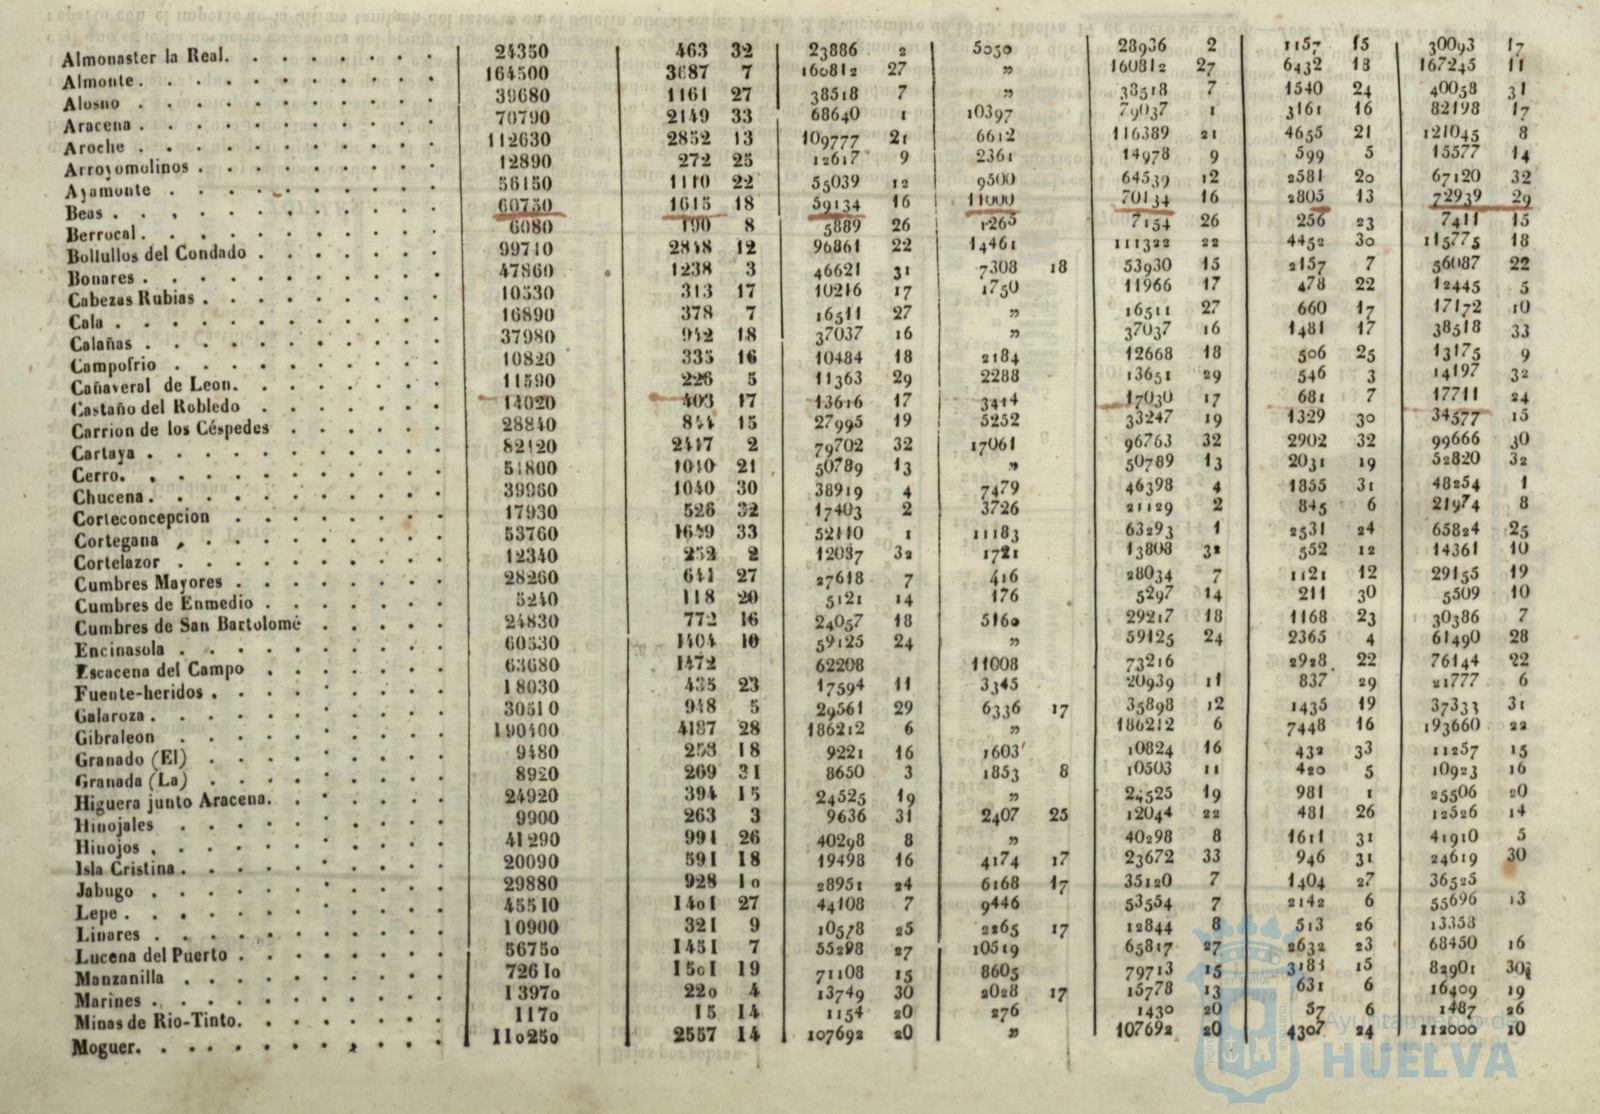 Almonaster la Real. 24350 463 32 23886 2 5050 28936 2 1157 15 30093 17
Almonte. 164500 3687 7 160812 27 » 160812 27 6432 18 167245 11
Alosno 39680 1161 27 38518 7 » 38518 7 1540 24 40058 31
Aracena. 70790 2149 33 68640 1 10397 79037 1 3161 16 82198 17
Aroche 112630 2852 13 109777 21 6612 116389 21 4655 21 121045 8
Arroyomolinos 12890 272 25 12617 9 2361 14978 9 599 5 15577 14
Ayamonte 56150 1110 22 55039 12 9500 64539 12 2581 20 67120 32
Beas 60750 1615 18 59134 16 11000 70134 16 2805 13 72939 29
Berrocal. 6080 190 8 5889 26 1265 7154 26 256 23 7411 15
Bollullos del Condado 99710 2848 12 96861 22 14461 111322 22 4452 30 115775 18
Bonares 47860 1238 3 46621 31 7308 18 53930 15 2157 7 56087 22
Cabezas Rubias 10530 313 17 10216 17 1750 11966 17 478 22 12445 5
Cala 16890 378 7 16511 27 » 16511 27 660 17 17172 10
Calañas 37980 942 18 37037 16 » 37037 16 1481 17 38518 33
Campofrio 10820 335 16 10484 18 2184 12668 18 506 25 13175 9
Cañaveral de Leon. 11590 226 5 11363 29 2288 13651 29 546 3 14197 32
Castaño del Robledo 14020 403 17 13616 17 3414 17030 17 681 7 17711 24
Carrion de los Céspedes 28840 844 15 27995 19 5252 33247 19 1329 30 34577 15
Cartaya 82120 2417 2 79702 32 17061 96763 32 2902 32 99666 30
Cerro. 51800 1010 21 50789 13 » 50789 13 2031 19 52820 32
Chucena. 39960 1040 30 38919 4 7479 46398 4 1855 31 48254 1
Corteconcepcion 17930 526 32 17403 2 3726 21129 2 845 6 21974 8
Cortegana 53760 1649 33 52110 1 11183 63293 1 2531 24 65824 25
Cortelazor 12340 252 2 12087 32 1721 13808 32 552 12 14361 10
Cumbres Mayores 28260 641 27 27618 7 416 28034 7 1121 12 29155 19
Cumbres de Enmedio 5240 118 20 5121 14 176 5297 14 211 30 5509 10
Cumbres de San Bartolomé 24830 772 16 24057 18 5160 29217 18 1168 23 30386 7
Encinasola 60530 1404 10 59125 24 » 59125 24 2365 4 61490 28
Escacena del Campo 63680 1472 62208 11008 73216 2928 22 76144 22
Fuente-heridos 18030 435 23 17594 11 3345 20939 11 837 29 21777 6
Galaroza. 30510 948 5 29561 29 6336 17 35898 12 1435 19 37333 31
Gibraleon 190400 4187 28 186212 6 » 186212 6 7448 16 193660 22
Granado (El) 9480 258 18 9221 16 1603 10824 16 432 33 11257 15
Granada (La) 8920 269 31 8650 3 1853 8 10503 11 420 5 10923 16
Higuera junto Aracena. 24920 394 15 24525 19 » 24525 19 981 1 25506 20
Hinojales 9900 263 3 9636 31 2407 25 12044 22 481 26 12526 14
Hinojos 41290 991 26 40298 8 » 40298 8 1611 31 41910 5
Isla Cristina. 20090 591 18 19498 16 4174 17 23672 33 946 31 24619 30
Jabugo 29880 928 10 28951 24 6168 17 35120 7 1404 27 36525
Lepe 45510 1401 27 44108 7 9446 53554 7 2142 6 55696 13
Linares 10900 321 9 10578 25 2265 17 12844 8 513 26 13358
Lucena del Puerto 56750 1451 7 55298 27 10519 65817 27 2632 23 68450 16
Manzanilla 72610 1501 19 71108 15 8605 79713 15 3188 15 82901 30
Marines 13970 220 4 13749 30 2028 17 15778 13 631 6 16409 19
Minas de Rio-Tinto. 1170 15 14 1154 20 276 1430 20 57 6 1487 26
Moguer. 110250 2557 14 107692 20 » 107692 20 4307 24 112000 10
Ayuntamiento de
HUELVA